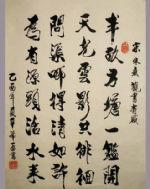 宋朱熹 觀書有感
半畝方塘一鑑開
天光雲影共徘徊
問渠哪得清如許
為有源頭活水來
乙酉年夏